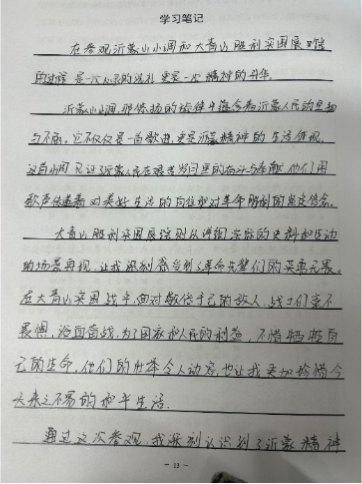 学习笔记
在参观沂蒙山小调和大青山胜利突围展馆
的过程 是一次心灵的洗礼 更是一次精神的升华。
沂蒙山小调,那悠扬的旋律中蕴含着沂蒙人民的坚韧
与不屈。它不仅仅是一首歌曲,更是沂蒙精神的生活体现。
这首小调见证了沂蒙人民在艰苦岁月里的奋斗与奉献 他们用
歌声传递着对美好生活的向往和对革命胜利的坚定信念。
大青山胜利突围展馆则从详细实的史料和生动
的场景再现,让我深刻感受到了革命先辈们的英勇无畏。
在大青山突围战中,面对数倍于己的敌人,战士们毫不
畏惧,浴血奋战,为了国家和人民的利益,不惜牺牲自
己的生命,他们的壮举令人动容,也让我更加珍惜今
天来之不易的和平生活.
通过这次参观,我深刻认识到了沂蒙精神
- 11 -